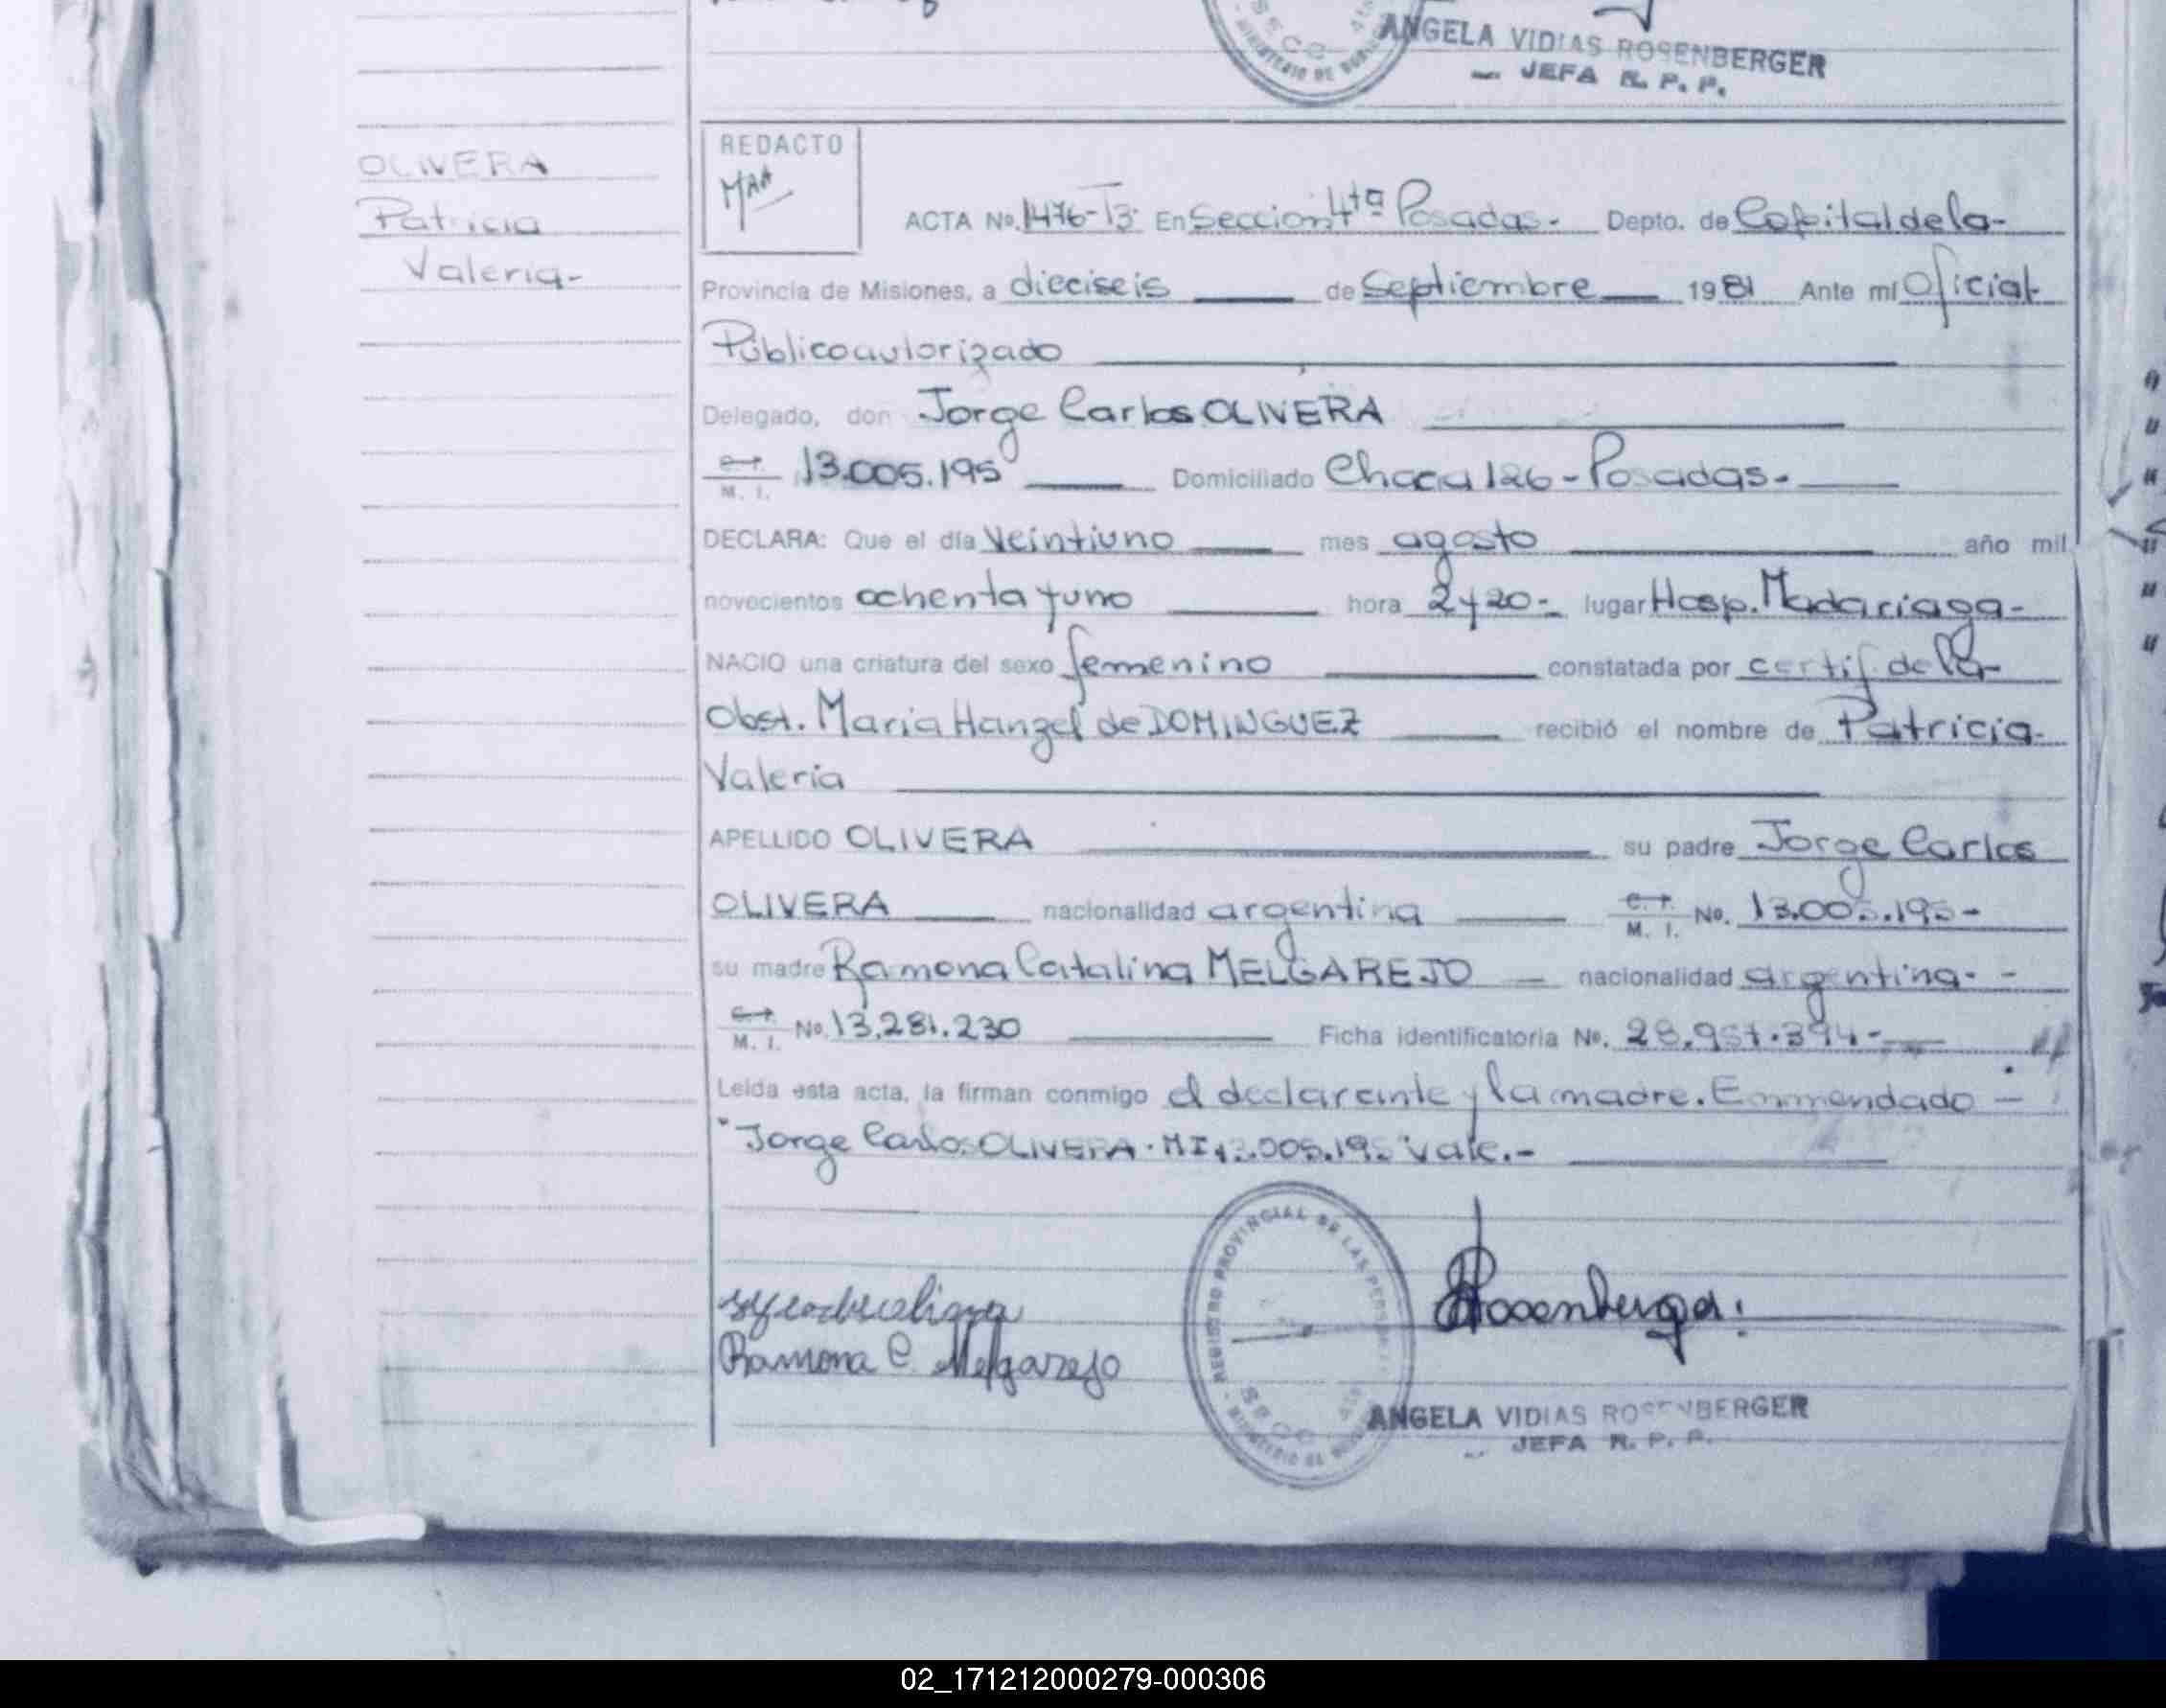 ANGELA VIDIAS ROSENBERGER
JEFA R. P. P.
OLIVERA
Patricia
Valeria-
REDACTO
ACTA No. 1476-T3 En Seccion 4ta Posadas.- Depto. de Capital de la-
Provincia de Misiones, a dieciseis de Septiembre 1981 Ante mí Oficial
Público autorizado
Delegado, don Jorge Carlos OLIVERA
C. I.
M. I. 13.005.195 Domiciliado Chacra 126-Posadas.-
DECLARA: Que el día Veintiuno mes agosto año mil
novecientos ochenta y uno hora 2y20- lugar Hosp. Madariaga-
NACIO una criatura del sexo femenino constatada por certif. de la-
Obst. Maria Hanzel de DOMINGUEZ recibió el nombre de Patricia-
Valeria
APELLIDO OLIVERA su padre Jorge Carlos
OLIVERA nacionalidad argentina C. I.
M. I. No. 13.005.195-
su madre Ramona Catalina MELGAREJO - nacionalidad argentina.-
C. I.
M. I. No. 13.281.230 Ficha identificatoria No. 28.957.394-
Leída esta acta, la firman conmigo el declarante y la madre. Enmendado -
"Jorge Carlos OLIVERA. MI 13.005.195" Vale.-
REGISTRO PROVINCIAL DE LAS PERSONAS
SECC. 4ta
Ramona C. Melgarejo
Rosenberger
ANGELA VIDIAS ROSENBERGER
JEFA R. P. P.
02_171212000279-000306